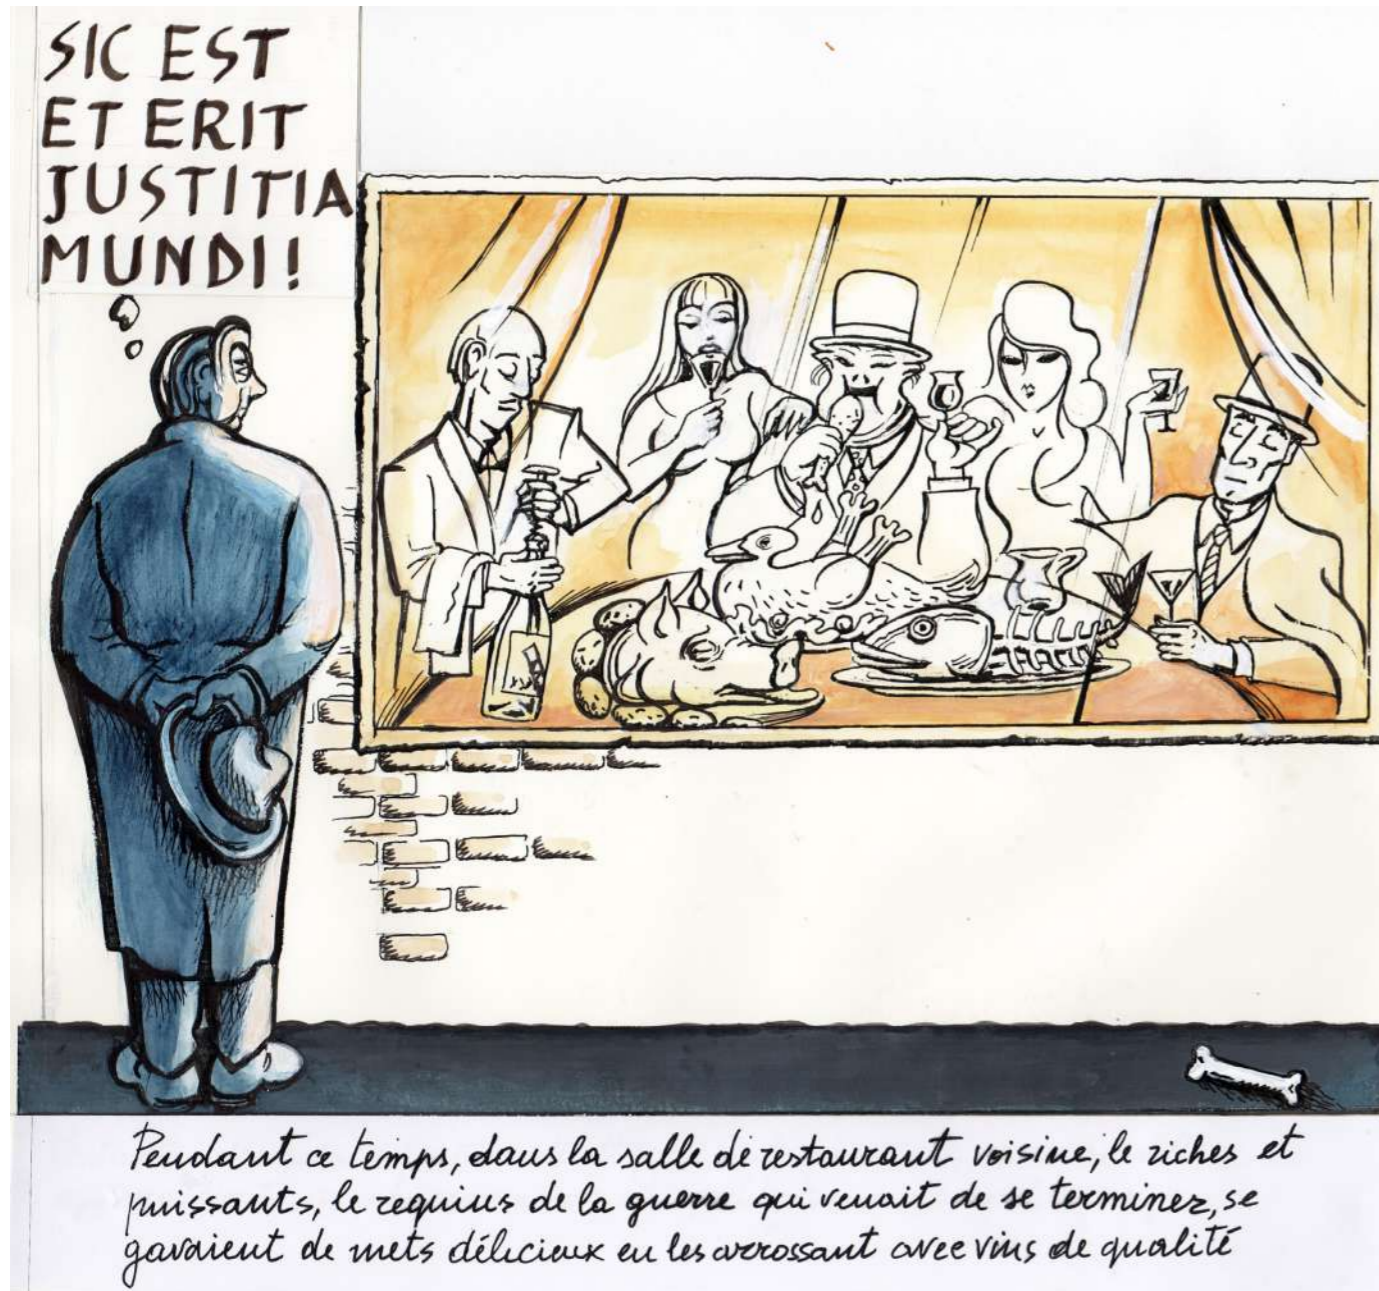 SIC EST
ET ERIT
JUSTITIA
MUNDI!
Pendant ce temps, dans la salle de restaurant voisine, le riches et
puissants, le requins de la guerre qui venait de se terminer, se
gavaient de mets délicieux en les arrossant avec vins de qualité